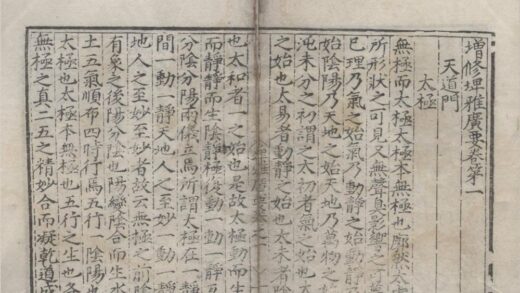 增修埤雅廣要卷第一
天道門
太極
無極而太極太極本無極也廓然太虚
所形狀之可見又無聲息影響之可
已理乃氣之始氣乃動靜之始動靜乃
始陰陽乃天地之始天地乃萬物之
沌未分之初謂之太初者氣之始也
之始也太易者動靜之始也太素者陰
也太和者一之始也是故太極動而生
而靜靜而生陰靜極復動一動一靜互
分陰分陽兩儀立焉所謂太極在一靜
間一動一靜天地人之至妙一動一
地人之至妙至妙者故云無極之前陰
有象之後陽分陰也陽變陰合而生水
土五氣順布四時行焉五行一陰陽也
太極也太極本無極也五行之生也各
無極之真二五之精妙合而凝乾道成